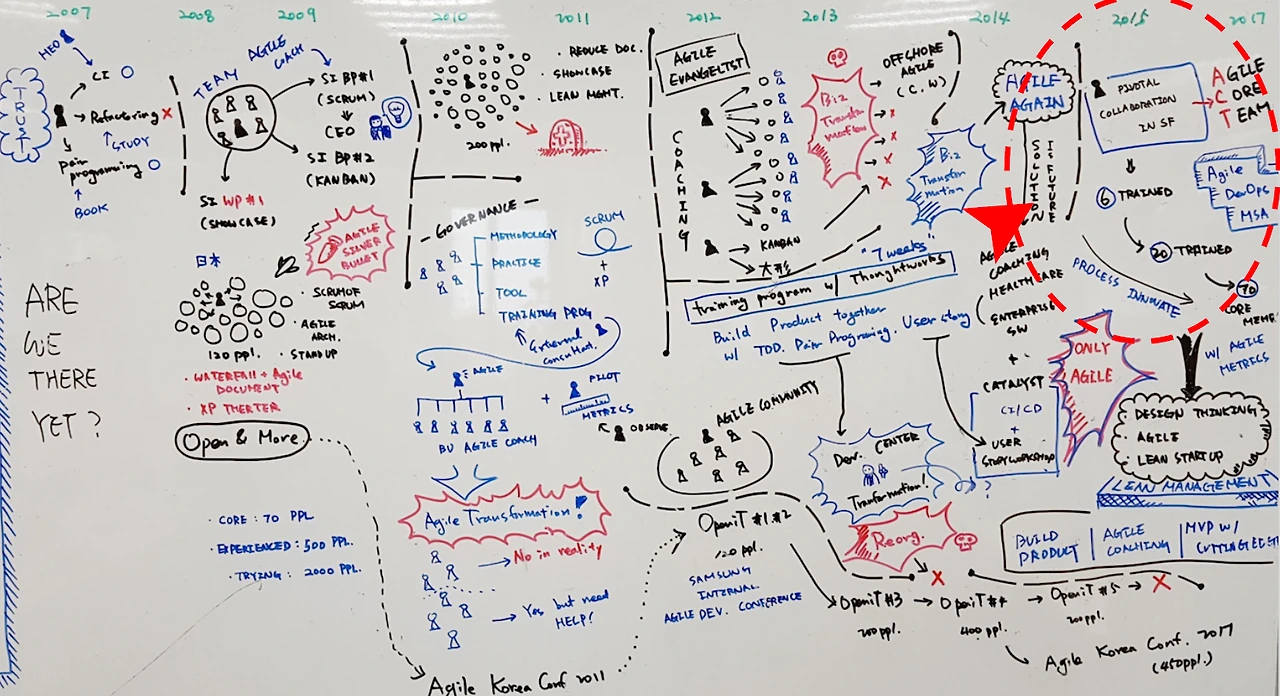 2007
2008
2009
2010
2011
2012
2013
2014
2015
2017
HEO
TRUST
CI
Refactoring X
STUDY
pair
programming
BOOK
TEAM
AGILE
COACH
SI BP#1
(SCRUM)
CEO
SI BP#2
(KANBAN)
SI WP#1
(SHOWCASE)
AGILE
SILVER
BULLET
日本
SCRUM OF
SCRUM
· AGILE
ARCH.
· STAND UP
120 ppl.
· WATERFALL + Agile
DOCUMENT
· XP THEATER
Open & More
ARE
WE
THERE
YET?
· CORE : 70 PPL
· EXPERIENCED : 500 PPL.
· TRYING : 2000 PPL.
200 ppl.
· REDUCE DOC.
· SHOWCASE
· LEAN MGMT.
GOVERNANCE
METHODOLOGY
PRACTICE
TOOL
TRAINING PROG
SCRUM
+
XP
External
consultant.
AGILE
BU AGILE COACH
+
PILOT
METRICS
OBSERVE
Agile Transformation!
No in reality
Yes but need
HELP!
Agile Korea Conf 2011
AGILE
EVANGELIST
COACHING
KANBAN
大形
Biz
Transfor
mation
X
X
X
X
OFFSHORE
AGILE
(C, W)
Biz
Transfor
mation
"7 weeks"
training program w/ Thoughtworks
Build Product together
w/ TDD. Pair Programing. User story
AGILE COMMUNITY
OpeniT #1 #2
120 ppl.
SAMSUNG
INTERNAL
AGILE DEV. CONFERENCE
Dev. CENTER
Tranformation!
?
Reorg.
X
OpeniT #3
200 ppl.
OpeniT #4
400 ppl.
OpeniT #5
200 ppl.
X
Agile Korea Conf. 2017
(450ppl.)
AGILE
AGAIN
SOLUTION
IS FUTURE
AGILE
COACHING
HEALTHCARE
ENTERPRISE
SW
+
CATALYST
CI/CD
+
USER
STORY WORKSHOP
PIVOTAL
COLLABORATION
IN SF
AGILE
CORE
TEAM
6 TRAINED
20 TRAINED
70
CORE MEME
Agile
DevOps
MSA
PROCESS INNOVATE
W/ AGILE
METRICS
ONLY
AGILE
· DESIGN THINKING
· AGILE
· LEAN STARTUP
LEAN MANAGEMENT
BUILD
PRODUCT
AGILE
COACHING
MVP W/
CUTTING EDGE